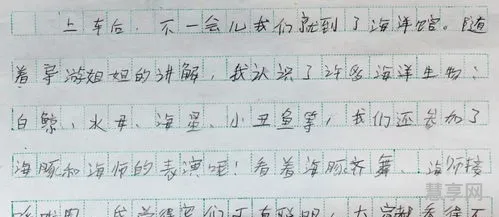 上车后，不一会儿我们就到了海洋馆。随
着导游姐姐的讲解，我认识了许多海洋生物：
白鲸、水母、海星、小丑鱼等，我们还参加了
海豚和海狮的表演哇！看着海豚齐舞、海狮接
我觉得它们真聪明，大家都看得不
黄享网